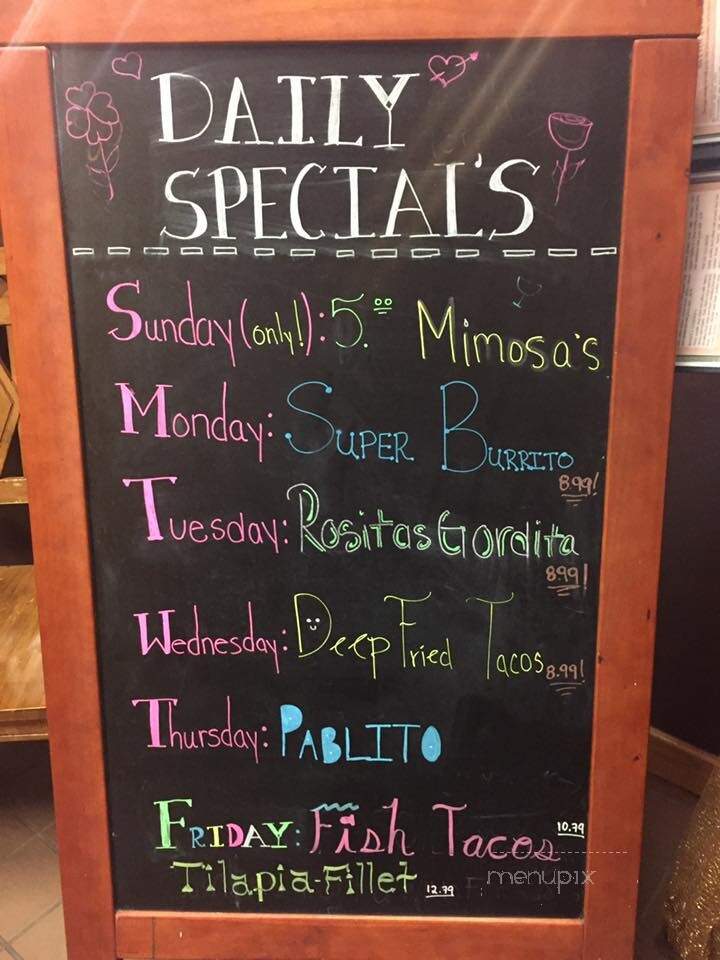 DAILY
SPECIAL'S
Sunday (only!): 5.00 Mimosa's
Monday: SUPER BURRITO
8.99!
Tuesday: Rositas Gordita
8.99!
Wednesday: Deep Fried Tacos 8.99!
Thursday: PABLITO
FRIDAY: Fish Tacos 10.79
Tilapia-Fillet 12.79
menupix